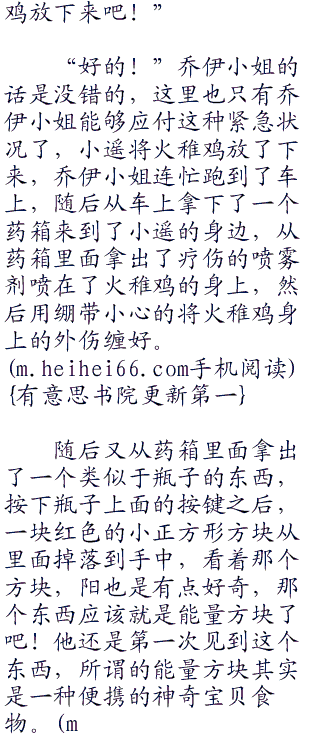 鸡放下来吧！”
“好的！”乔伊小姐的
话是没错的，这里也只有乔
伊小姐能够应付这种紧急状
况了，小遥将火稚鸡放了下
来，乔伊小姐连忙跑到了车
上，随后从车上拿下了一个
药箱来到了小遥的身边，从
药箱里面拿出了疗伤的喷雾
剂喷在了火稚鸡的身上，然
后用绷带小心的将火稚鸡身
上的外伤缠好。
(m.heihei66.com手机阅读)
{有意思书院更新第一}
随后又从药箱里面拿出
了一个类似于瓶子的东西，
按下瓶子上面的按键之后，
一块红色的小正方形方块从
里面掉落到手中，看着那个
方块，阳也是有点好奇，那
个东西应该就是能量方块了
吧！他还是第一次见到这个
东西，所谓的能量方块其实
是一种便携的神奇宝贝食
物。(m